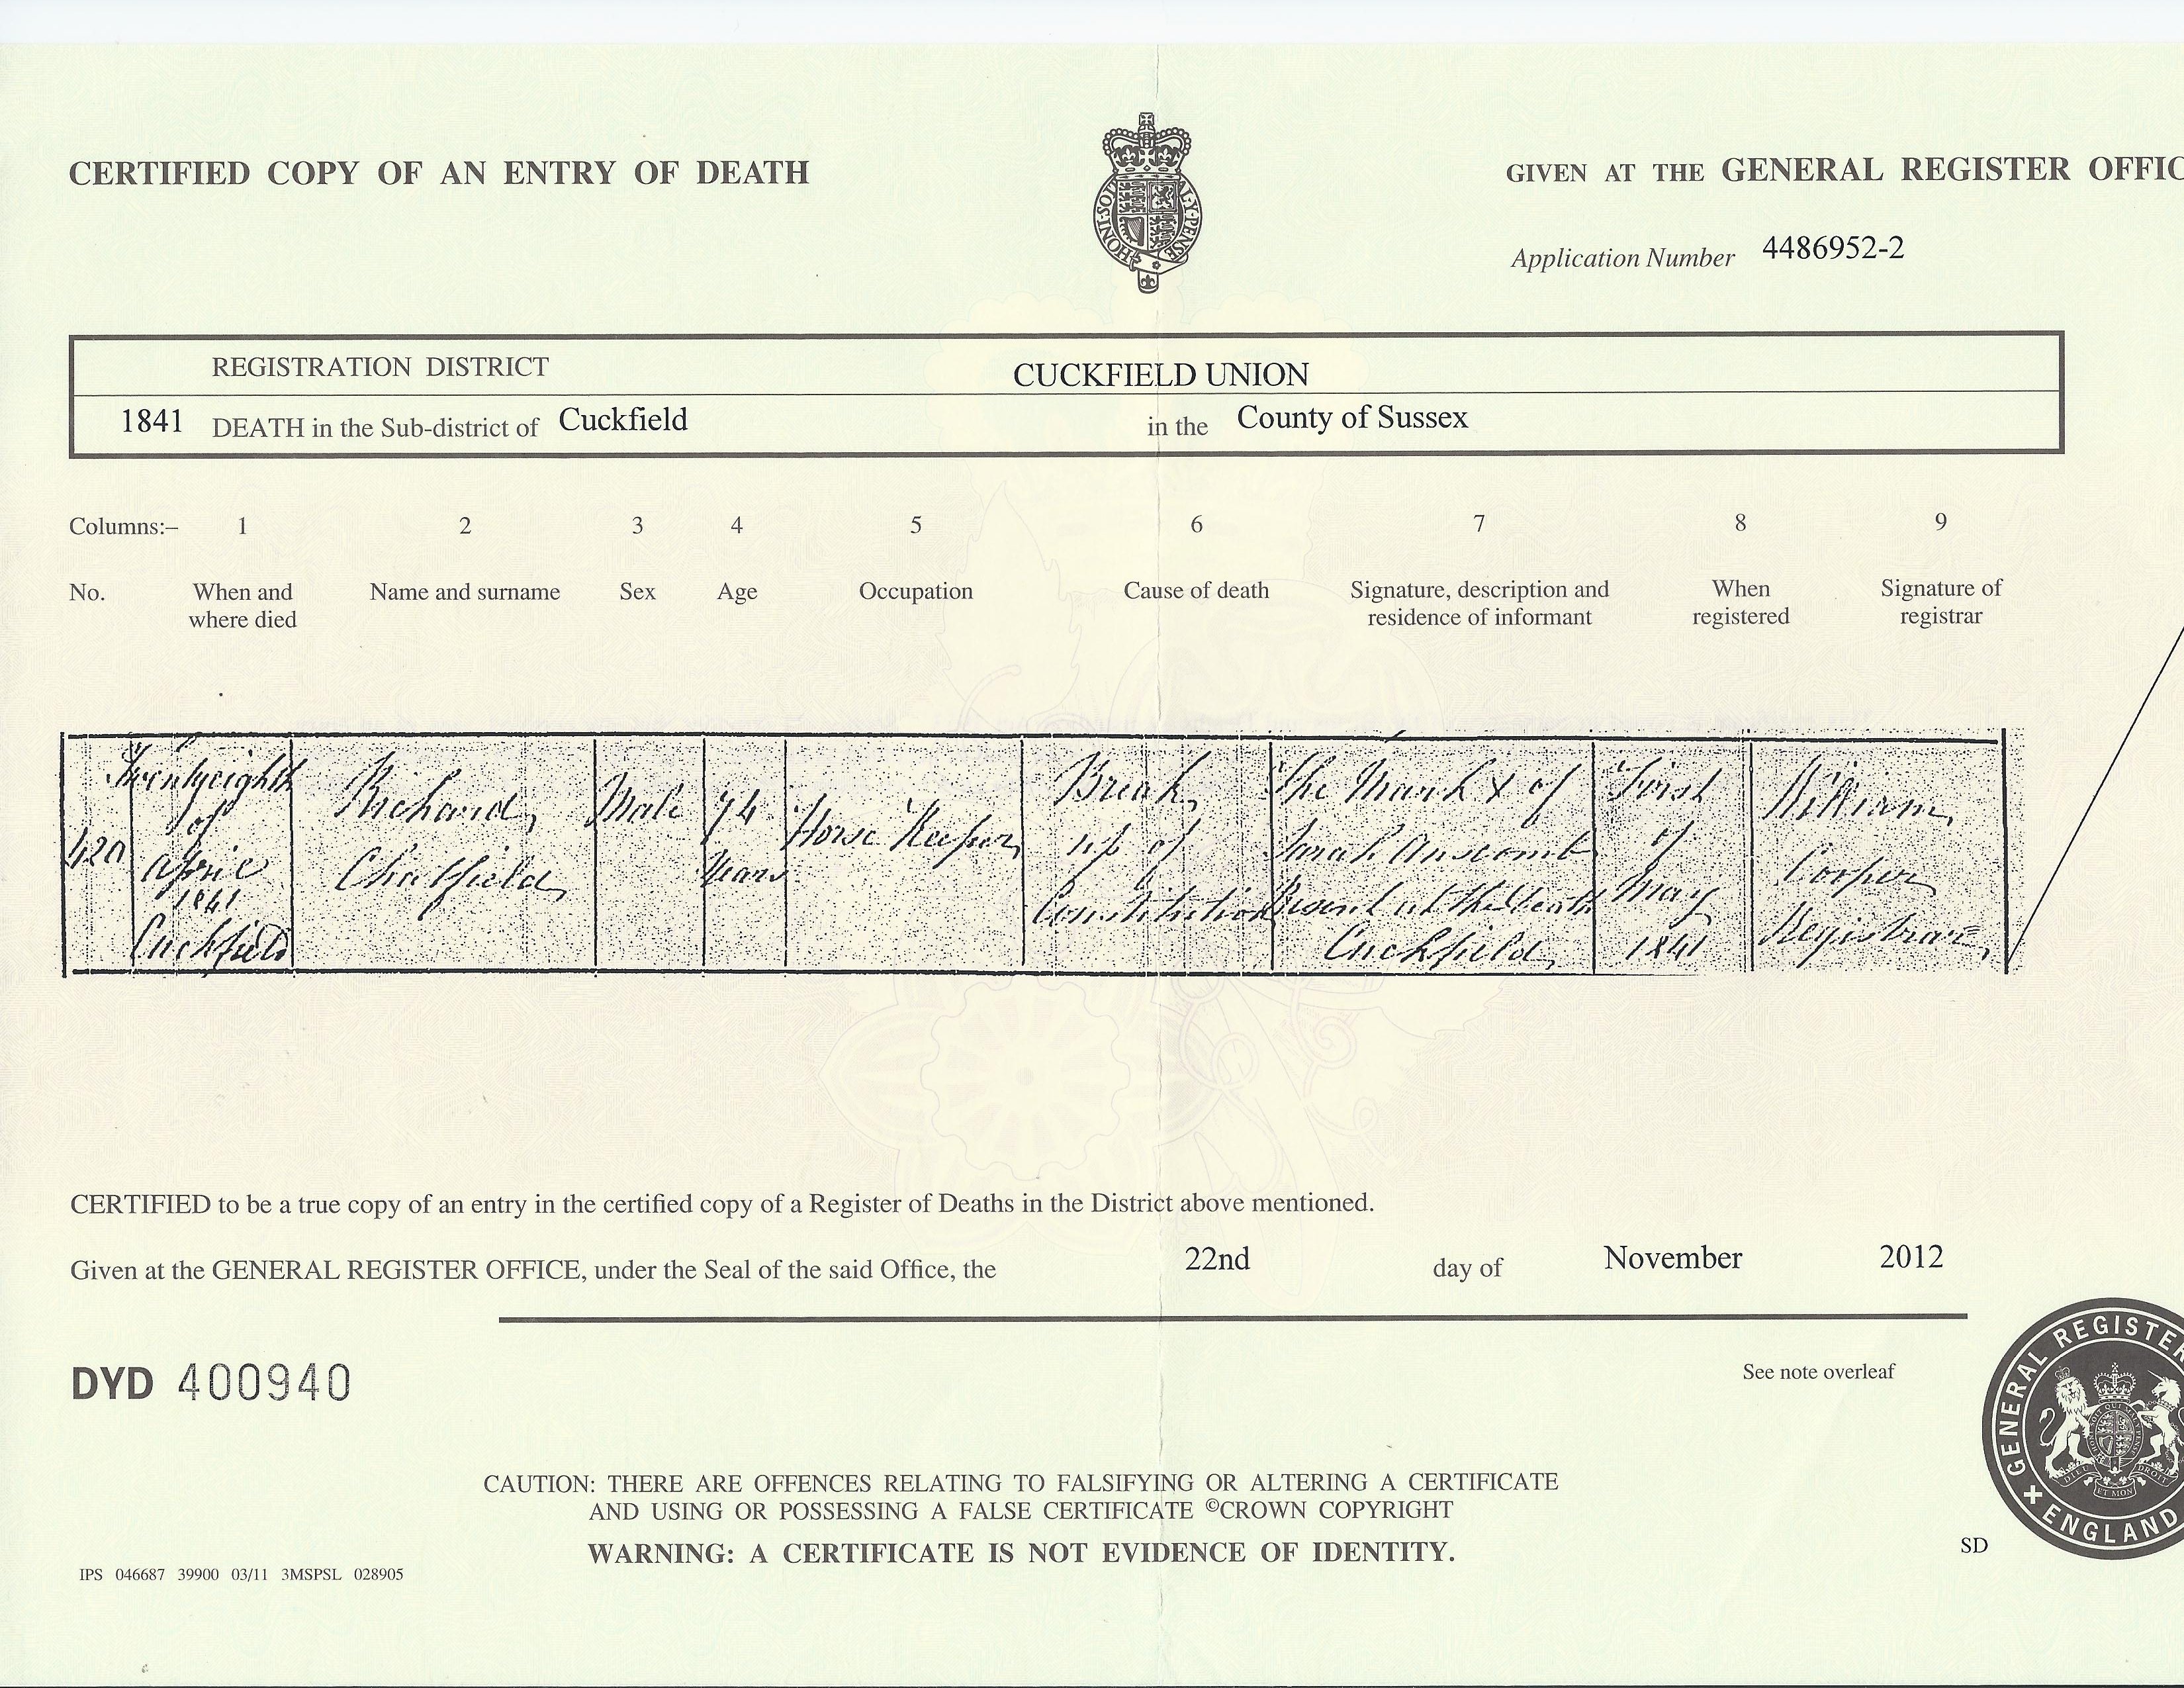 CERTIFIED COPY OF AN ENTRY OF DEATH
GIVEN AT THE GENERAL REGISTER OFFIC
HONI·SOI AL·Y·PENSE
Application Number 4486952-2
REGISTRATION DISTRICT CUCKFIELD UNION
1841 DEATH in the Sub-district of Cuckfield in the County of Sussex
Columns:– 1 2 3 4 5 6 7 8 9
No. When and Name and surname Sex Age Occupation Cause of death Signature, description and When Signature of
where died residence of informant registered registrar
420
Twentyeighth
of
April
1841
Cuckfield
Richard
Chatfield
Male
74
Years
Horse Keeper
Break
up of
Constitution
The Mark X of
Sarah Anscomb
Present at the Death
Cuckfield
First
of
May
1841
William
Cooper
Registrar
CERTIFIED to be a true copy of an entry in the certified copy of a Register of Deaths in the District above mentioned.
Given at the GENERAL REGISTER OFFICE, under the Seal of the said Office, the 22nd day of November 2012
DYD 400940
See note overleaf
GENERAL REGISTER
ENGLAND
DIEU ET MON DROIT
CAUTION: THERE ARE OFFENCES RELATING TO FALSIFYING OR ALTERING A CERTIFICATE
AND USING OR POSSESSING A FALSE CERTIFICATE ©CROWN COPYRIGHT
WARNING: A CERTIFICATE IS NOT EVIDENCE OF IDENTITY.
SD
IPS 046687 39900 03/11 3MSPSL 028905